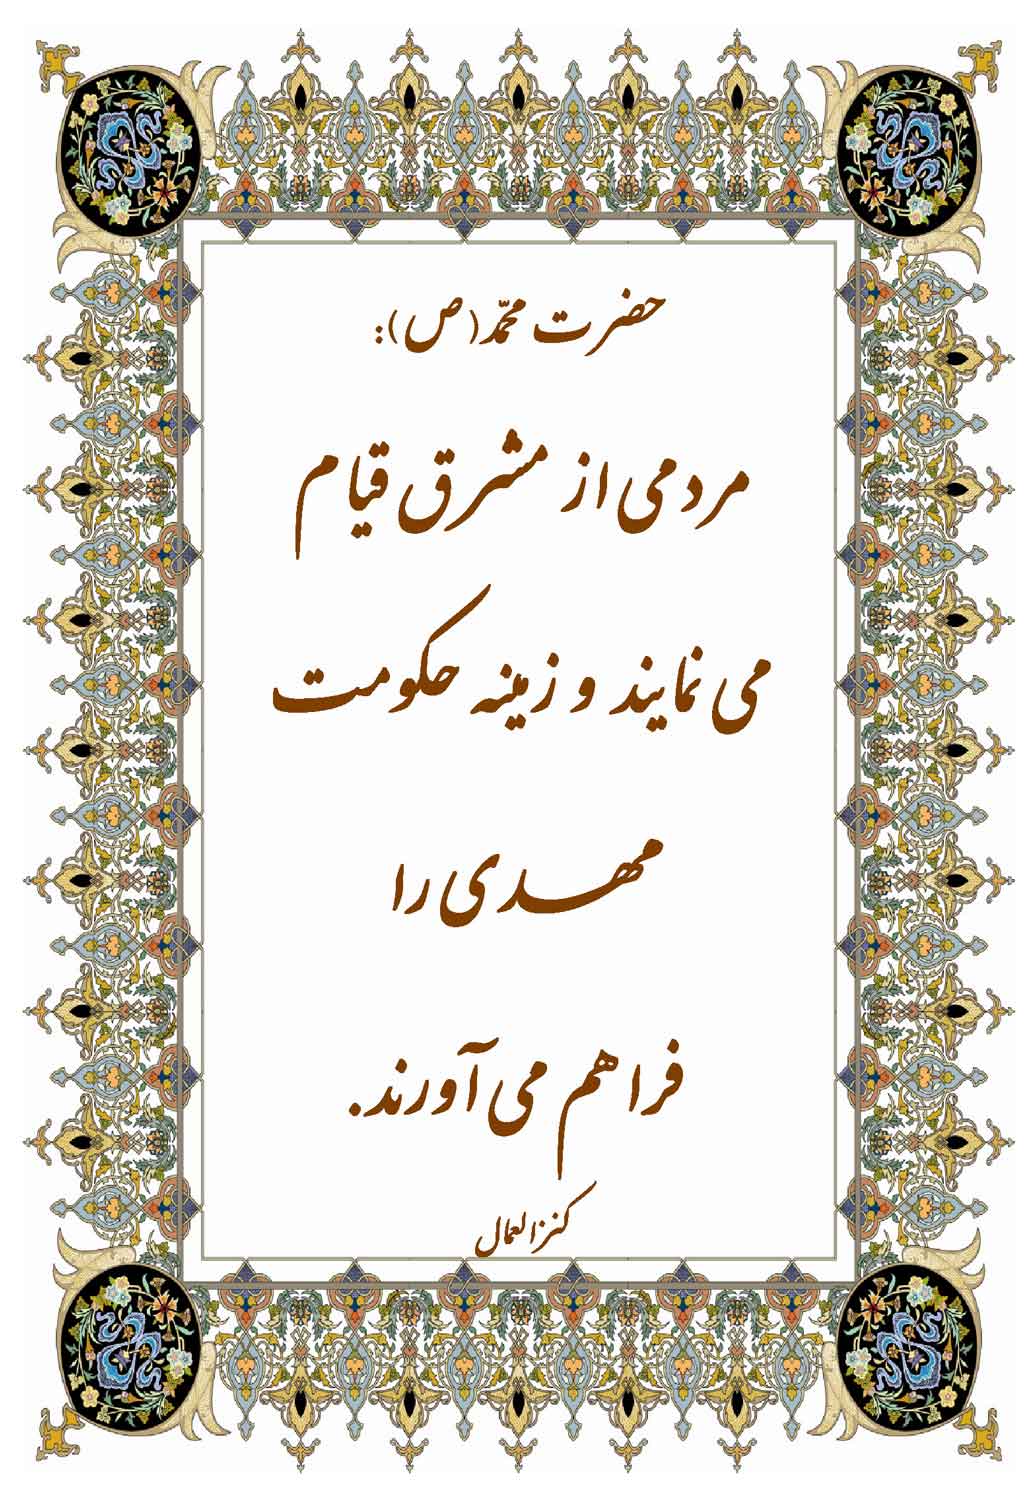 حضرت محمّد(ص):
مردمی از مشرق قیام
می نمایند و زمینه حکومت
مهدی را
فراهم می آورند.
کنزالعمال